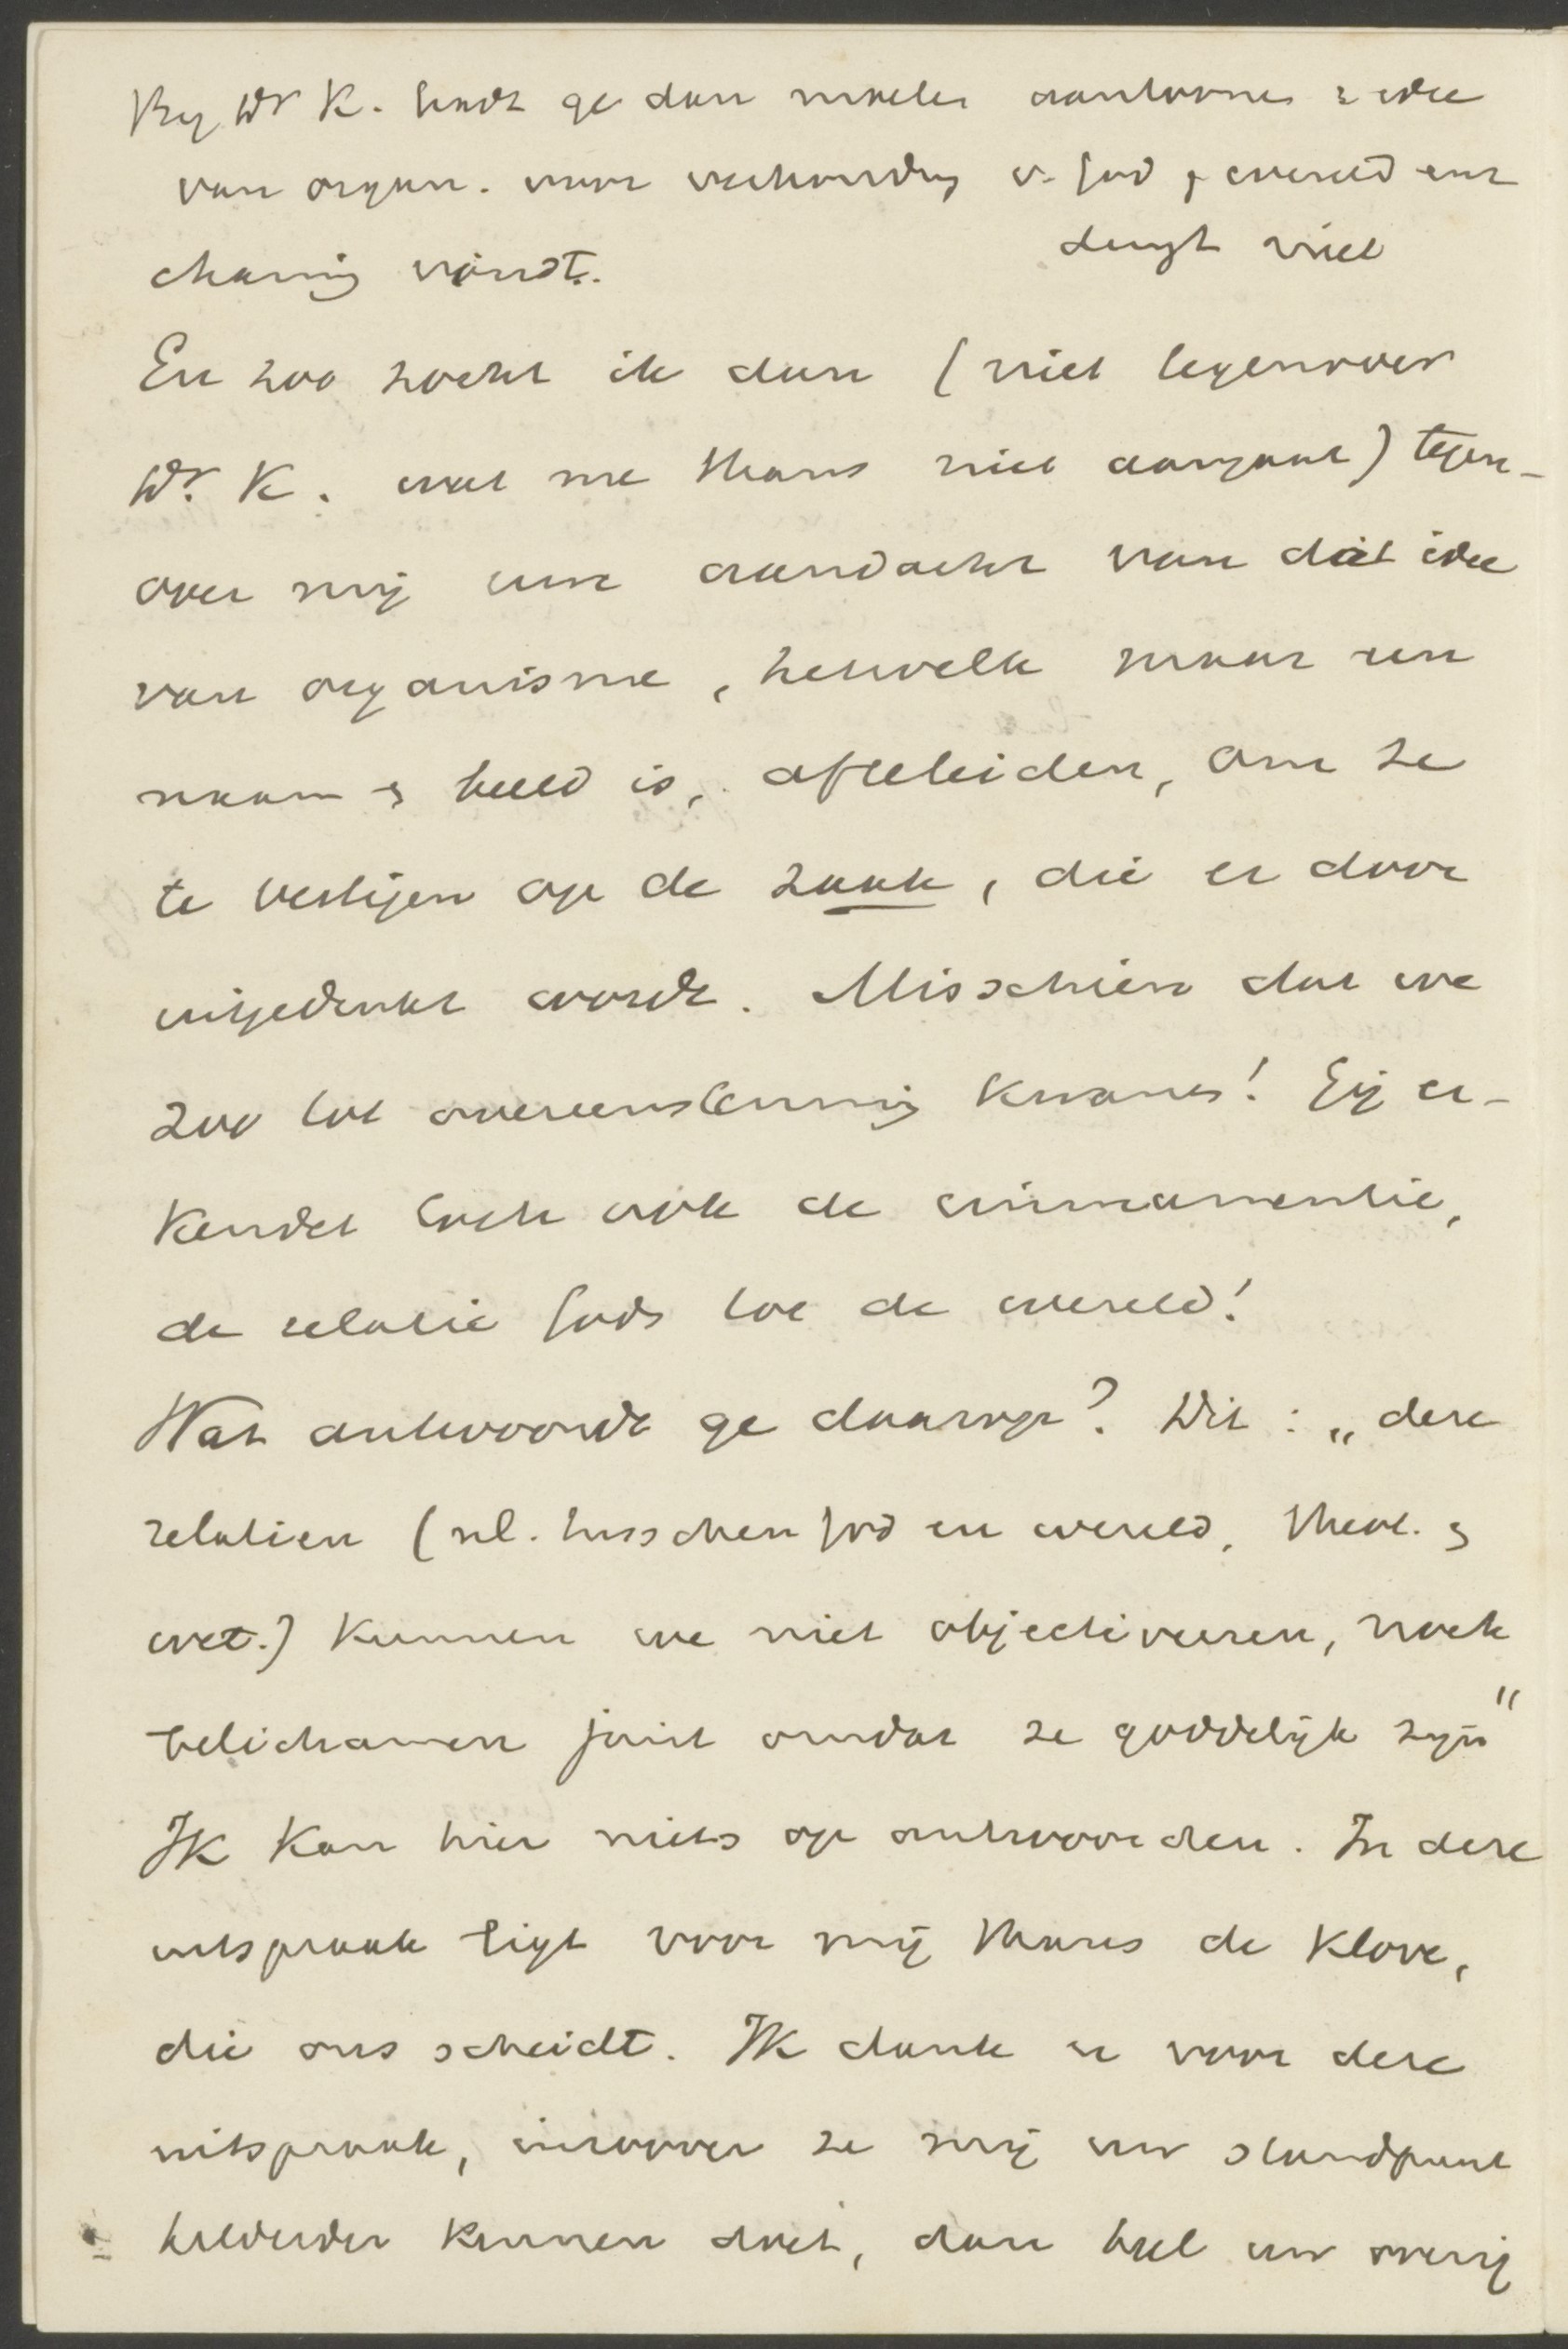 Bij Dr K. hadt ge dan moeten aantoonen z. idee
van organ. voor verhouding v. God & wereld enz
deugt niet
charing vindt.
En zoo zocht ik dan (niet tegenover
Dr. K. wat me thans niet aangaat) tegen-
over mij uw aandacht van dát idee
van organisme, hetwelk maar een
naam & beeld is, afteleiden, om ze
te vestigen op de zaak, die er door
uitgedrukt wordt. Misschien dat we
zoo tot overeenstemming kwamen! Gij er-
kendet toch ook de immanentie,
de relatie Gods tot de wereld!
Wat antwoordt ge daarop? Dit: „deze
relatien (nl. tusschen God en wereld, theol. &
wet.) kunnen we niet objectiveeren, noch
belichamen juist omdat ze goddelijk zijn"
Ik kan hier niets op antwoorden. In deze
uitspraak ligt voor mij thans de klove,
die ons scheidt. Ik dank u voor deze
uitspraak, inzoover ze mij uw standpunt
helderder kennen doet, dan heel uw overig